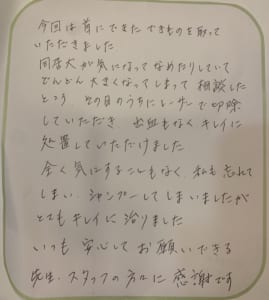 今回は首にできたできものを取って
いただきました
同居犬が気になってなめたりしていて
どんどん大きくなってしまって相談した
ところ その日のうちにレーザーで切除
していただき 出血もなくキレイに
処置していただけました
全く気にすることもなく、私も忘れて
しまい シャンプーしてしまいましたが
とてもキレイに治りました
いつも安心してお願いできる
先生、スタッフの方々に感謝です